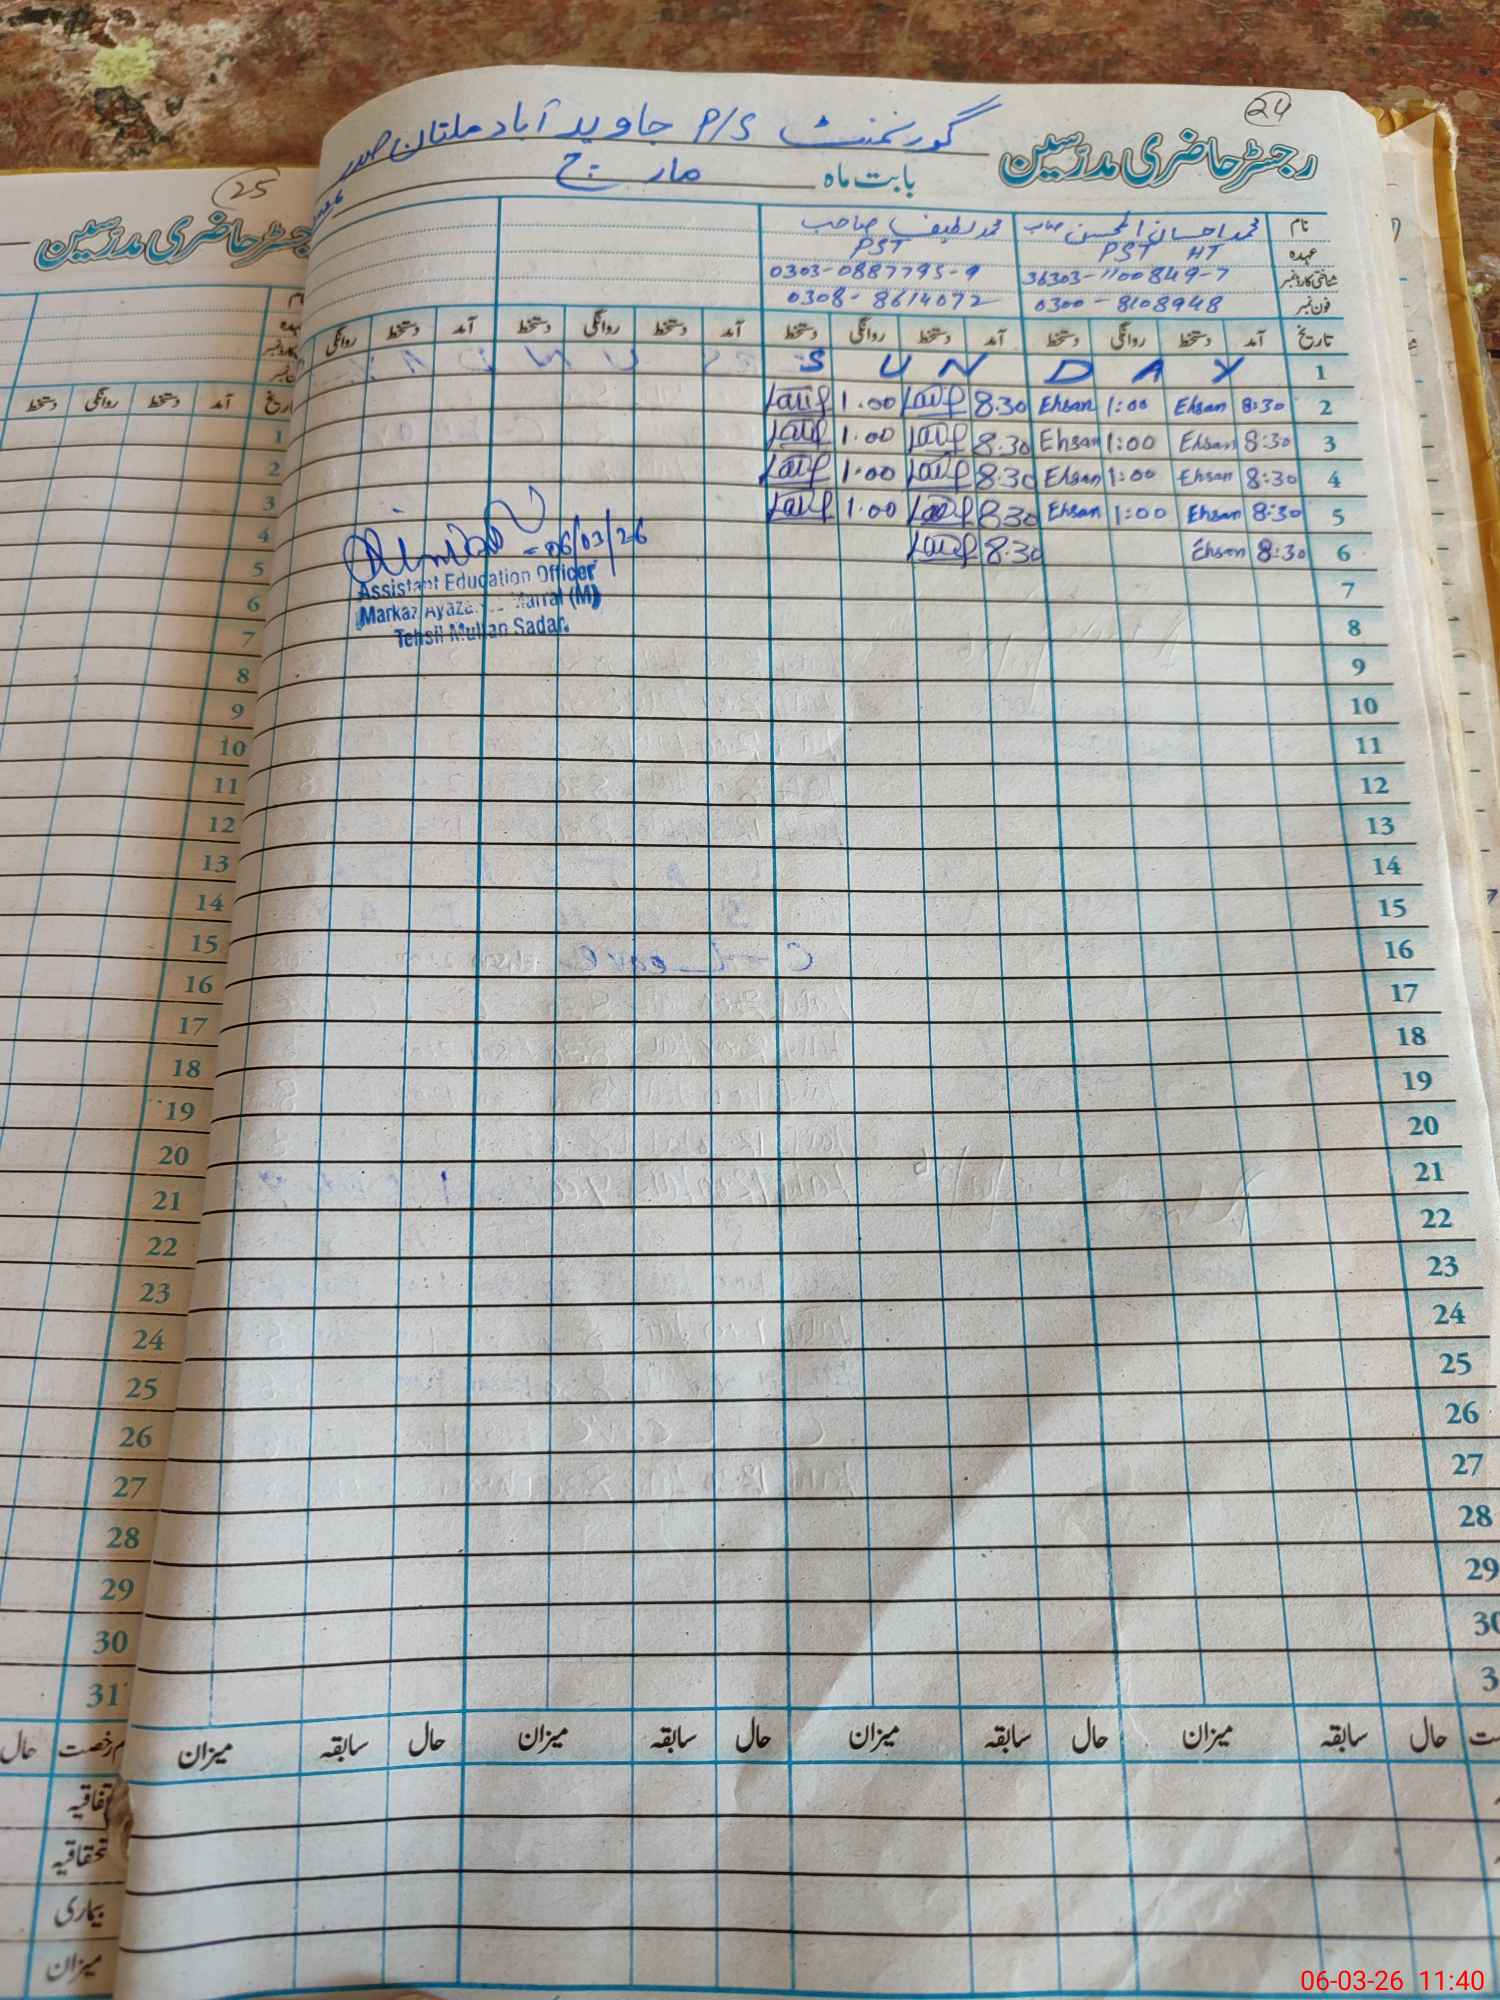 24
رجسٹر حاضری مدرسین گورنمنٹ P/S جاوید آباد ملتان صدر
بابت ماہ مارچ
نام محمد احسان الحسن صاحب محمد لطیف صاحب
عہدہ PST HT PST
شناختی کارڈ نمبر 36303-1100849-7 0303-0887795-9
فون نمبر 0300-8108948 0308-8614072
تاریخ آمد دستخط روانگی دستخط آمد دستخط روانگی دستخط آمد دستخط روانگی دستخط آمد دستخط روانگی
1 S U N D A Y
2 8:30 Ehsan 1:00 Ehsan 8.30 Latif 1.00 Latif
3 8:30 Ehsan 1:00 Ehsan 8.30 Latif 1.00 Latif
4 8:30 Ehsan 1:00 Ehsan 8.30 Latif 1.00 Latif
5 8:30 Ehsan 1:00 Ehsan 8.30 Latif 1.00 Latif
6 8:30 Ehsan 8.30 Latif
06/03/26
Assistant Education Officer
Markaz Marral (M)
Tehsil Multan Sadar.
7
8
9
10
11
12
13
14
15
16
17
18
19
20
21
22
23
24
25
26
27
28
29
30
3
حال سابقہ میزان حال سابقہ میزان حال سابقہ میزان حال سابقہ میزان
25
رجسٹر حاضری مدرسین
تاریخ آمد دستخط روانگی دستخط
1
2
3
4
5
6
7
8
9
10
11
12
13
14
15
16
17
18
19
20
21
22
23
24
25
26
27
28
29
30
31
رخصت حال
بیماری
میزان
06-03-26 11:40